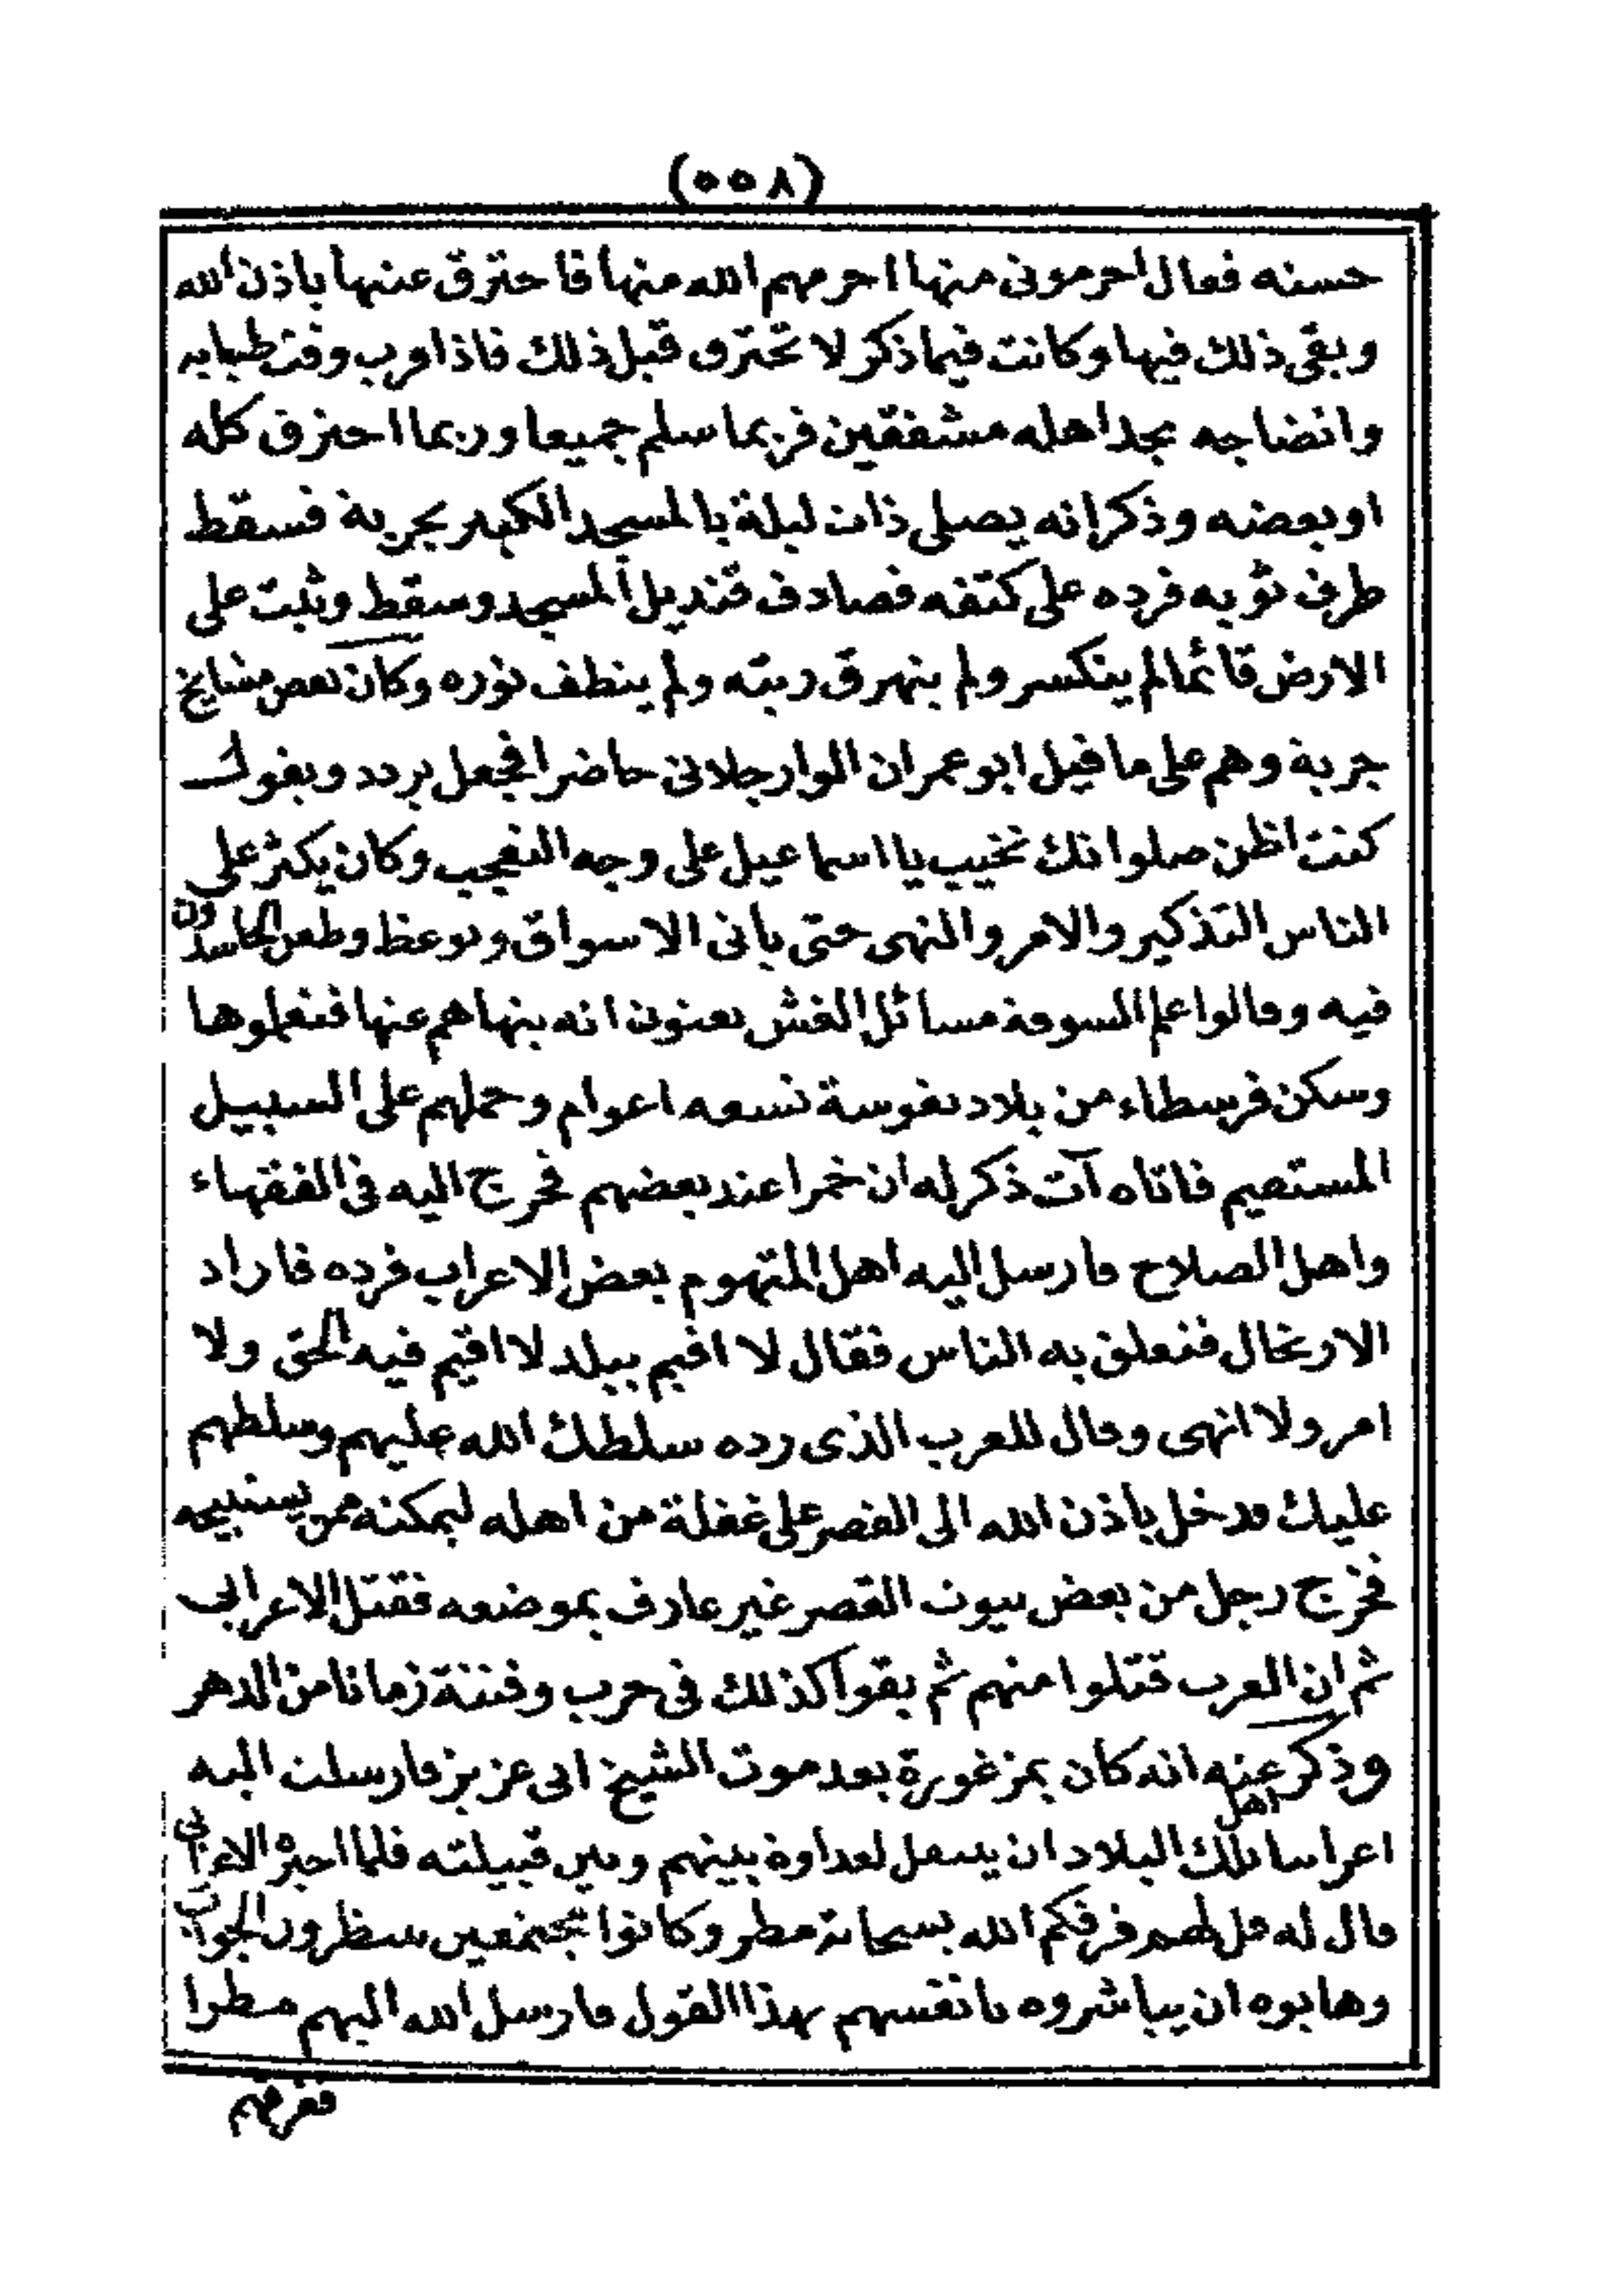 (٥٥٨)
حسنه فقال احرمونى منها احرمهم الله منها فاحترق عنبها باذن الله
وبقى ذلك فيها وكانت فيما ذكر لا تحترق قبل ذلك فاذا قرب وقت طيابه
وانضاجه تجد اهله مشفقين فربما سلم جميعا وربما احترق كله
او بعضه وذكر انه يصلى ذات ليلة بالمسجد الكبير بجربة فسقط
طرف ثوبه فرده على كتفه فصادف قنديل المسجد وسقط وثبت على
الارض قائما لم ينكسر ولم ينهرق زيته ولم ينطف نوره وكان بعض مشايخ
جربة وهم على ما قيل ابو عمران الوارجلانى حاضرا فجعل يردد ويقول
كنت اظن صلواتك تخيب يا اسماعيل على وجه التعجب وكان يكثر على
الناس التذكير والامر والنهى حتى يأتى الاسواق ويوعظ وطعن الحاسدون
فيه وقالوا علم السوقة مسائل الغش يعنون انه ينهاهم عنها فتعلموها
وسكن فرسطاء من بلاد نفوسة تسعه اعوام وحملهم على السبيل
المستقيم فاتاه آت ذكر له ان خمرا عند بعضهم فخرج اليه فى الفقهاء
واهل الصلاح فارسل اليه اهل المتهوم بعض الاعراب فرده فاراد
الارتحال فتعلق به الناس فقال لا اقيم ببلد لا اقيم فيه الحق ولا
امر ولا انهى وقال للعرب الذى رده سلطك الله عليهم وسلطهم
عليك فدخل باذن الله الى القصر على غفلة من اهله ليمكنه من يستبيحه
فخرج رجل من بعض بيوت القصر غير عارف بموضعه فقتل الاعرابى
ثم ان العرب قتلوا منهم ثم بقوا كذلك فى حرب وفتنة زمانا من الدهر
وذكر عنه انه كان بمزغورة بعد موت الشيخ ابى عزيز فارسلت اليه
اعرابيا اهل تلك البلاد ان ينتقل لعداوة بينهم وبين قبيلته فلما اخبره الاعرابى
قال له قل لهم فرقكم الله بسحابة مطر وكانوا مجتمعين ينتظرون الجواب
وهابوه ان يباشروه بانفسهم بهذا القول فارسل الله اليهم مطرا
ففرقهم